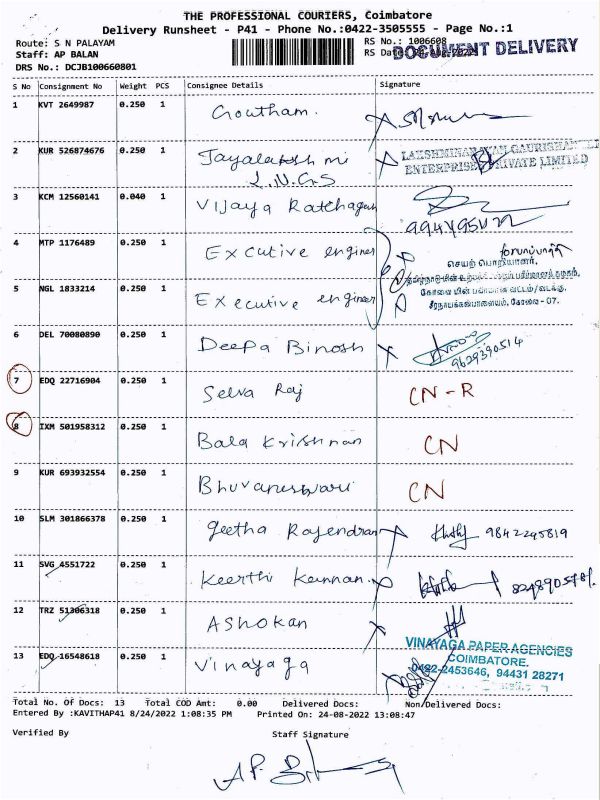 THE PROFESSIONAL COURIERS, Coimbatore
Delivery Runsheet - P41 - Phone No.:0422-3505555 - Page No.:1
Route: S N PALAYAM
RS No.: 1006608
Staff: AP BALAN
RS Date:
DOCUMENT DELIVERY
DRS No.: DCJB100660801
S No Consignment No Weight PCS Consignee Details Signature
1 KVT 2649987 0.250 1 Goutham.
2 KUR 526874676 0.250 1 Jayalakshmi
L.N.G.S
LAKSHMINARAYAN GAURISHANKAR
ENTERPRISES PRIVATE LIMITED
3 KCM 12560141 0.040 1 Vijaya Ratchagan
4 MTP 1176489 0.250 1 Excutive enginer
செயற் பொறியாளர்,
5 NGL 1833214 0.250 1 Executive enginer
சீரநாயக்கன்பாளையம், கோவை - 07.
6 DEL 70080890 0.250 1 Deepa Binosh
9629390514
7 EDQ 22716904 0.250 1 Selva Raj CN - R
8 IXM 501958312 0.250 1 Bala Krishnan CN
9 KUR 693932554 0.250 1 Bhuvaneswari CN
10 SLM 301866378 0.250 1 geetha Rajendran 9842245819
11 SVG 4551722 0.250 1 Keerthi Kannan
12 TRZ 51306318 0.250 1 Ashokan
13 EDQ 16548618 0.250 1 Vinayaga
VINAYAGA PAPER AGENCIES
COIMBATORE.
0422-2453646, 94431 28271
Total No. Of Docs: 13 Total COD Amt: 0.00 Delivered Docs: Non/Delivered Docs:
Entered By :KAVITHAP41 8/24/2022 1:08:35 PM Printed On: 24-08-2022 13:08:47
Verified By Staff Signature